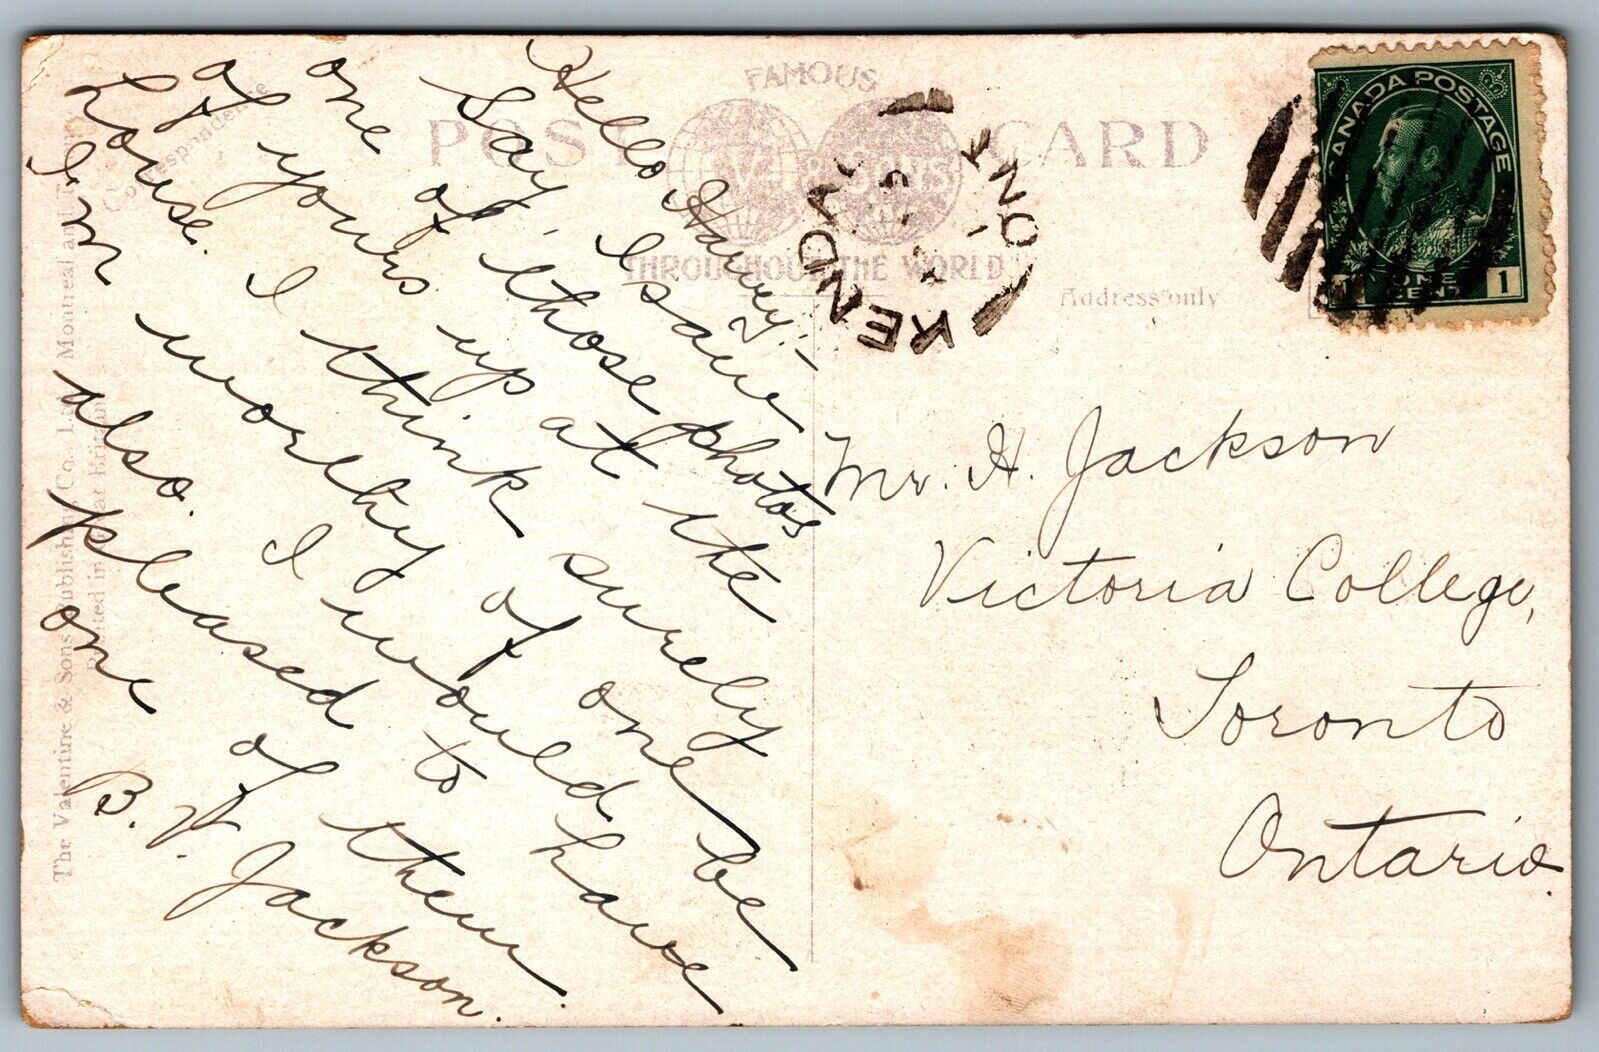 FAMOUS
POST CARD
V & SONS
THROUGHOUT THE WORLD
Correspondence
Address only
The Valentine & Sons Publishing Co., Ltd. Montreal and
Printed in Great Britain
KENDAL
ONT
CANADA POSTAGE
1 ONE CENT 1
Hello Harvey:-
Say, I saw
one of those photos
of yours up at the
house. I think surely
I'm woreby of one
also. I would be
pleased to have
one of them.
B. V. Jackson.
Mr. H. Jackson
Victoria College,
Toronto
Ontario.